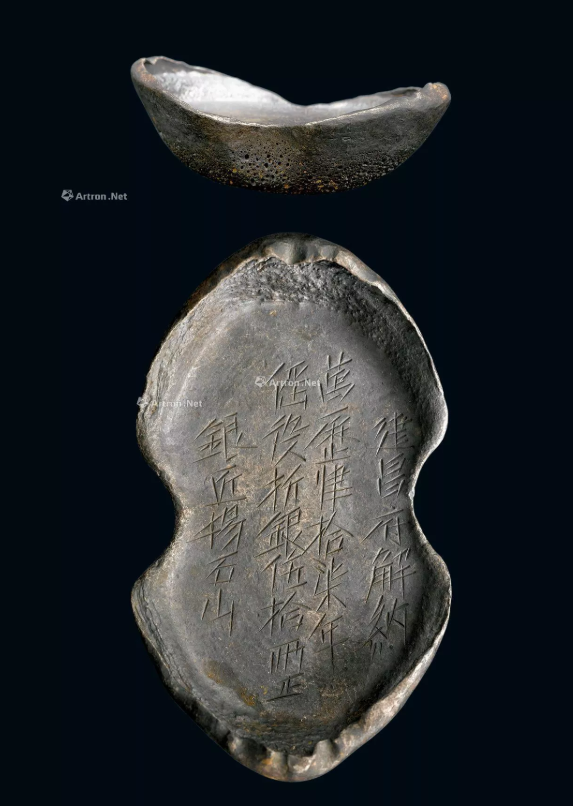 Artron.Net
Artron.Net
Artron.Net
建昌府解納
萬歷肆拾柒年
徭役折銀伍拾兩正
銀匠楊石山